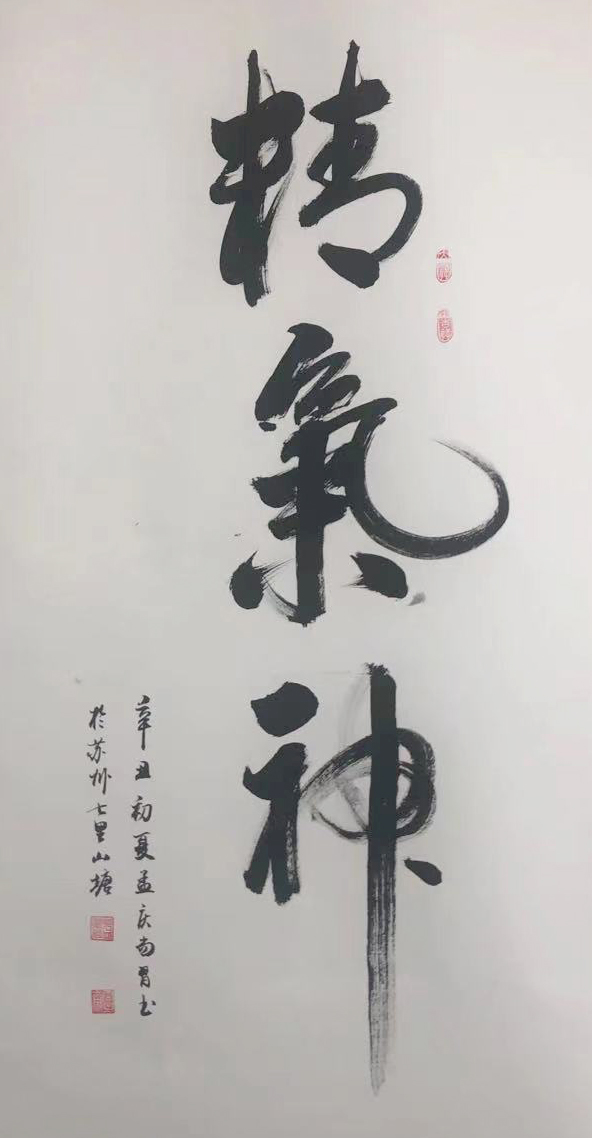 精氣神
辛丑初夏孟庆
书
於苏州七里山塘